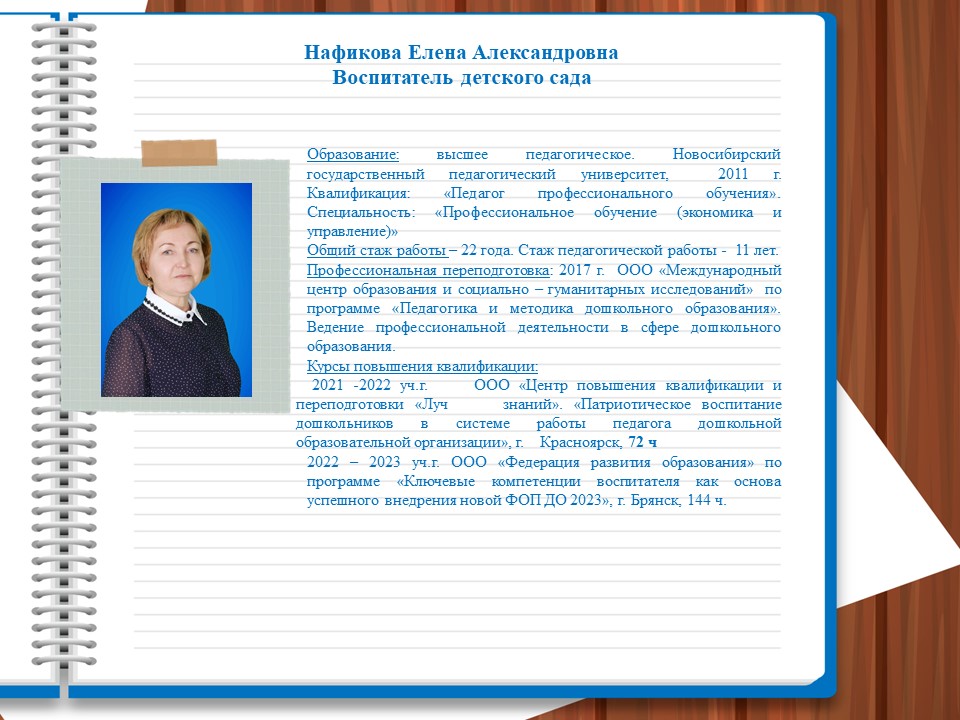 Нафикова Елена Александровна
Воспитатель детского сада
Образование: высшее педагогическое. Новосибирский
государственный педагогический университет, 2011 г.
Квалификация: «Педагог профессионального обучения».
Специальность: «Профессиональное обучение (экономика и
управление)»
Общий стаж работы – 22 года. Стаж педагогической работы - 11 лет.
Профессиональная переподготовка: 2017 г. ООО «Международный
центр образования и социально – гуманитарных исследований» по
программе «Педагогика и методика дошкольного образования».
Ведение профессиональной деятельности в сфере дошкольного
образования.
Курсы повышения квалификации:
2021 -2022 уч.г. ООО «Центр повышения квалификации и
переподготовки «Луч знаний». «Патриотическое воспитание
дошкольников в системе работы педагога дошкольной
образовательной организации», г. Красноярск, 72 ч
2022 – 2023 уч.г. ООО «Федерация развития образования» по
программе «Ключевые компетенции воспитателя как основа
успешного внедрения новой ФОП ДО 2023», г. Брянск, 144 ч.